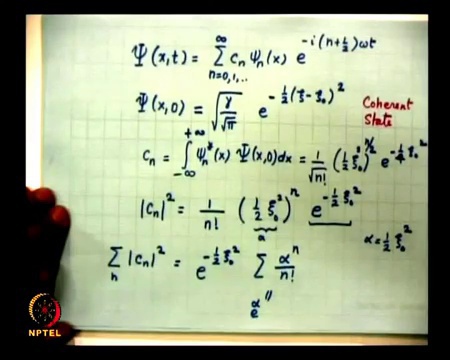 Ψ(x,t) = ∑_{n=0,1,..}^{∞} c_n ψ_n(x) e^{-i(n+½)ωt}
Ψ(x,0) = √(γ/√π) e^{-½(ξ-ξ₀)²}
Coherent
State
c_n = ∫_{-∞}^{+∞} ψ_n*(x) Ψ(x,0)dx = 1/√n! (½ξ₀²)^{n/2} e^{-¼ξ₀²}
|c_n|² = 1/n! (½ξ₀²)^n e^{-½ξ₀²}
α
α = ½ξ₀²
∑_n |c_n|² = e^{-½ξ₀²} ∑ α^n/n!
e^α
NPTEL